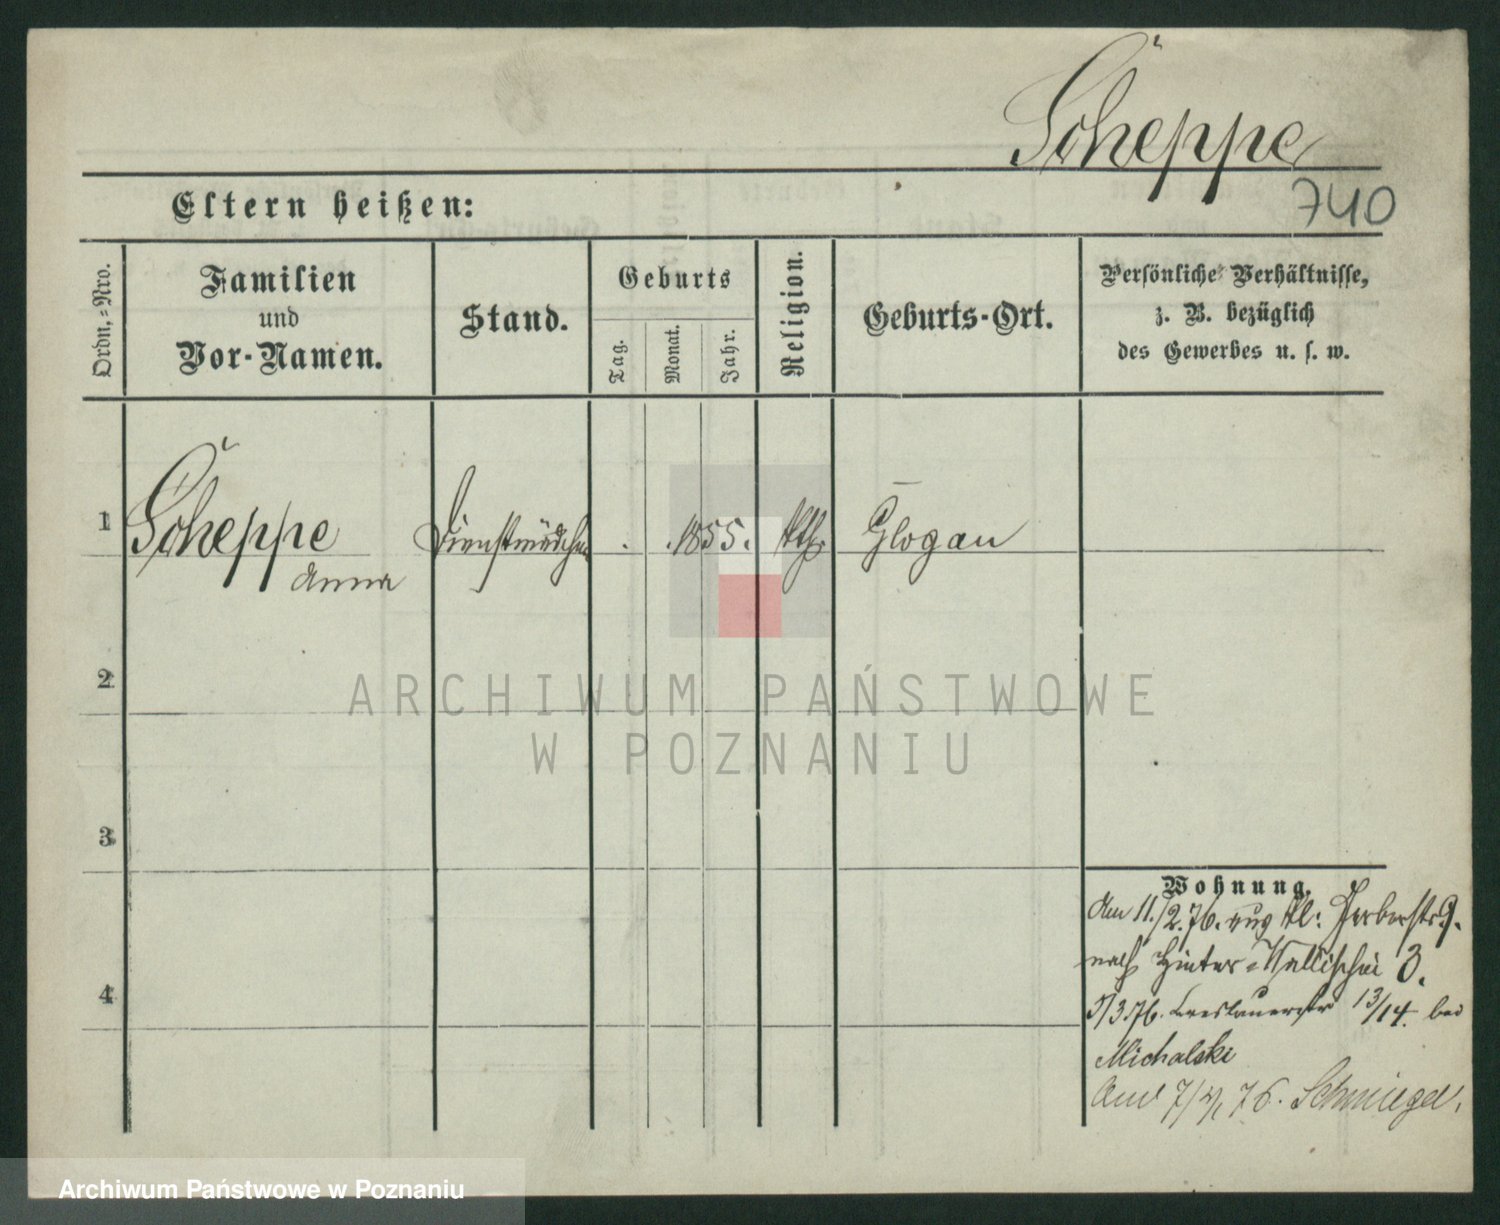 Scheppe
740
Eltern heißen:
Ordn.=Nro.
Familien
und
Vor-Namen.
Stand.
Geburts
Tag.
Monat.
Jahr.
Religion.
Geburts-Ort.
Persönliche Verhältnisse,
z. B. bezüglich
des Gewerbes u. s. w.
1
Scheppe
Anna
Dienstmädchen
1855.
kth.
Glogau
2
3
4
Wohnung.
Am 11./2.76. aus kl. Gerberstr 9.
nach Hinter-Wallischei 3.
3.76. Breslauerstr 13/14. bei
Michalski
7/4 76. Schmiegel.
ARCHIWUM PAŃSTWOWE
W POZNANIU
Archiwum Państwowe w Poznaniu